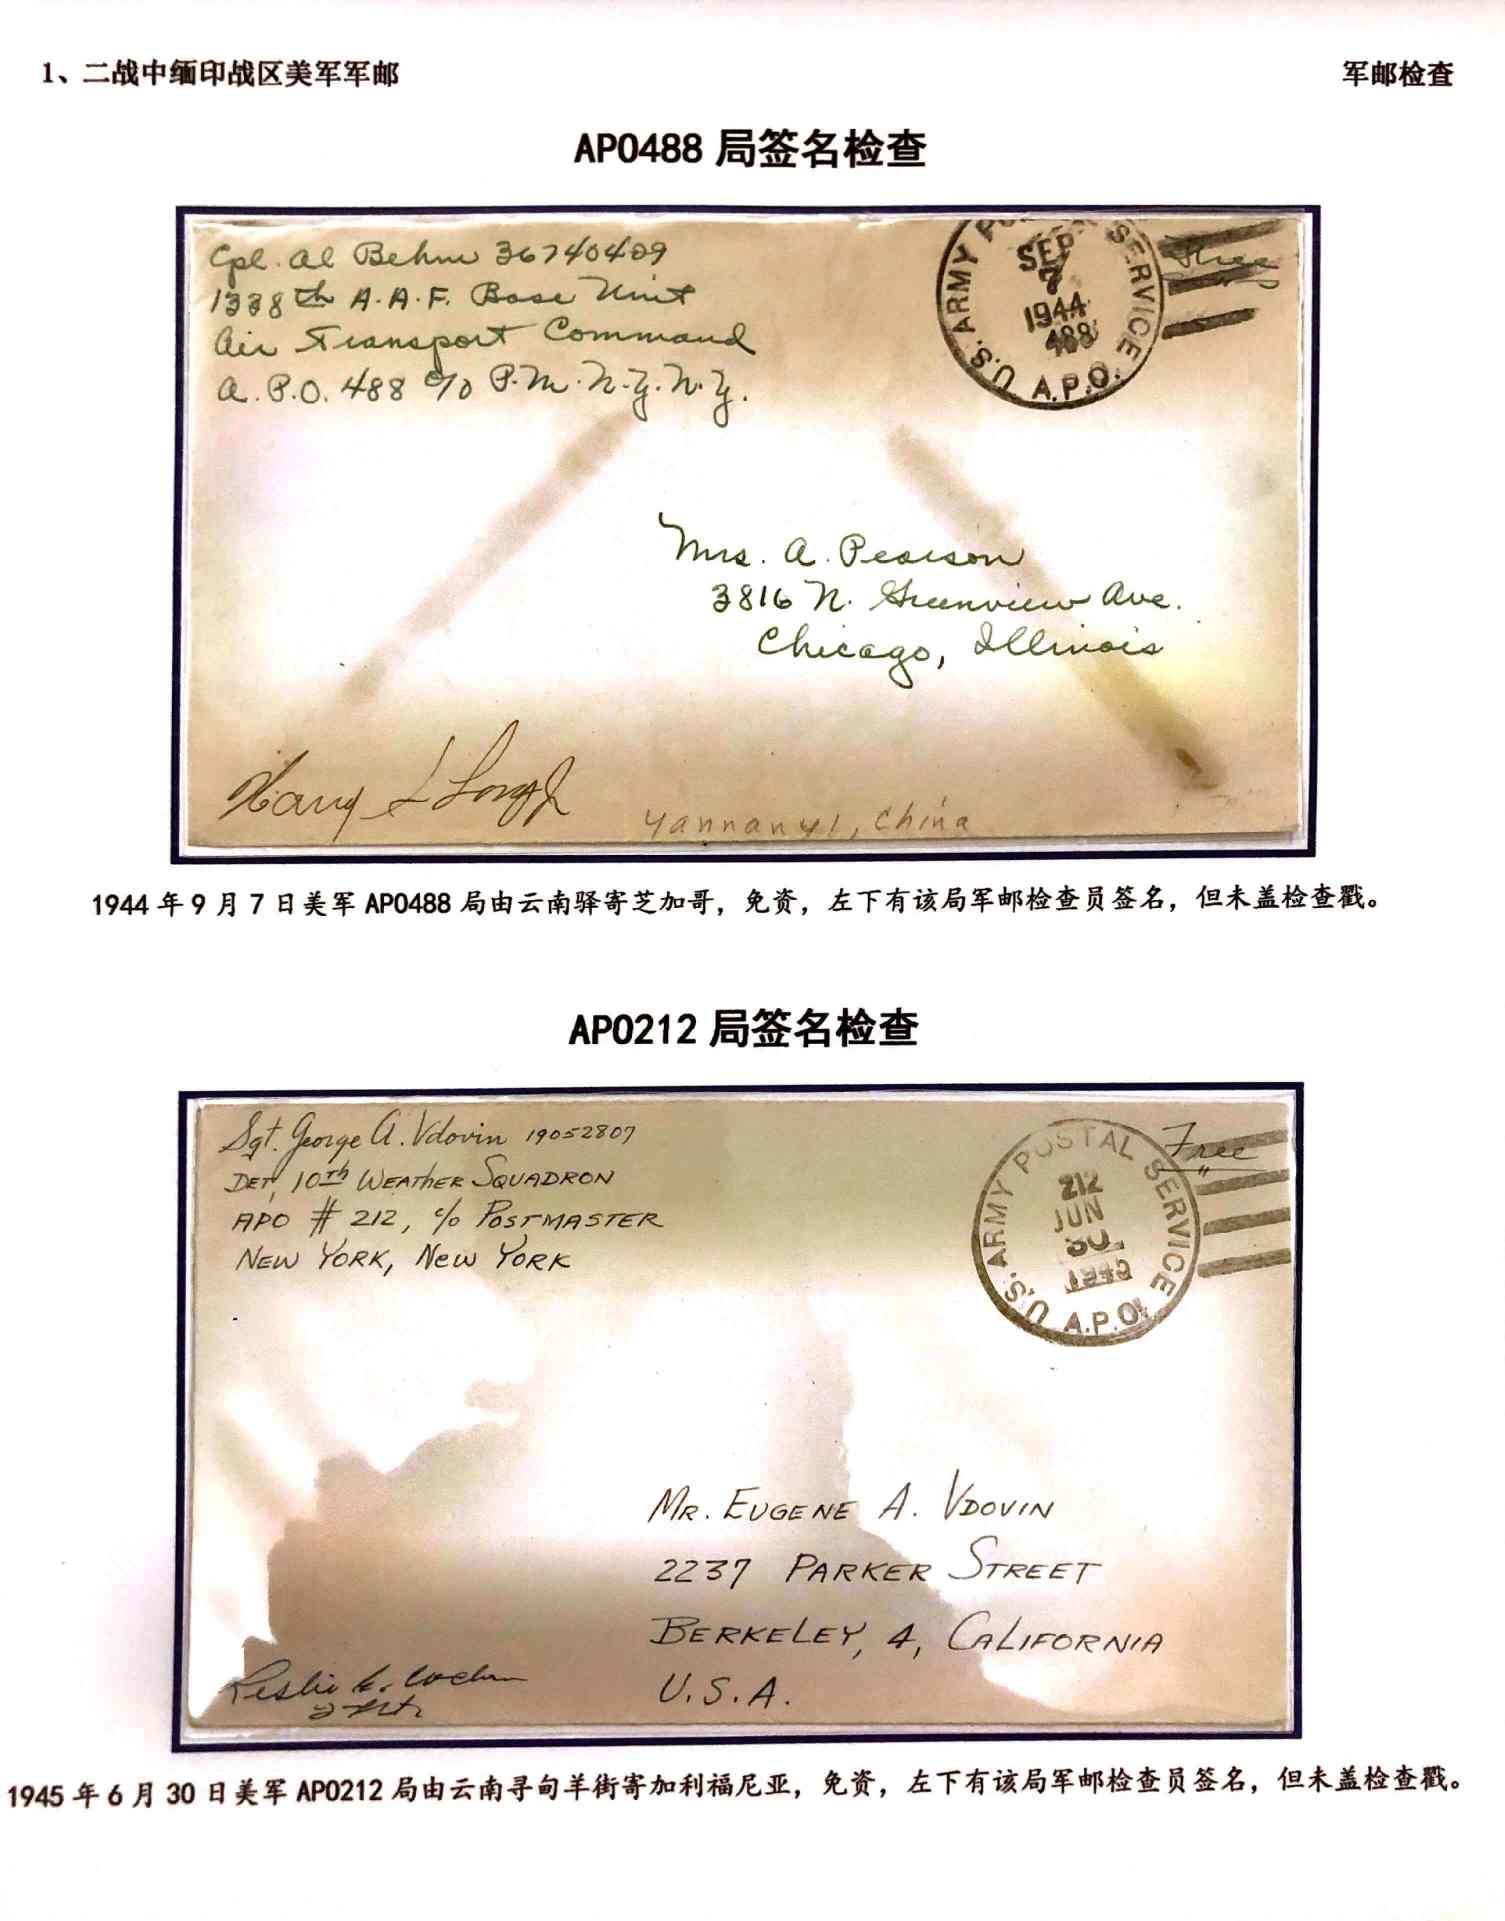 1、二战中缅印战区美军军邮
军邮检查
APO488 局签名检查
Cpl. Al Behm 36740409
1338th A.A.F. Base Unit
Air Transport Command
A.P.O. 488 c/o P.M. N.Y. N.Y.
U.S. ARMY POSTAL SERVICE
SEP
7
1944
488
A.P.O.
Free
Mrs. A. Pearson
3816 N. Greenview Ave.
Chicago, Illinois
Harry L
Yannanyi, China
1944 年 9 月 7 日美军 APO488 局由云南驿寄芝加哥，免资，左下有该局军邮检查员签名，但未盖检查戳。
APO212 局签名检查
Sgt. George A. Vdovin 19052807
DET, 10th WEATHER SQUADRON
APO # 212, c/o POSTMASTER
NEW YORK, NEW YORK
U.S. ARMY POSTAL SERVICE
212
JUN
30
1945
A.P.O.
Free
MR. EUGENE A. VDOVIN
2237 PARKER STREET
BERKELEY, 4, CALIFORNIA
U.S.A.
Leslie
1945 年 6 月 30 日美军 APO212 局由云南寻甸羊街寄加利福尼亚，免资，左下有该局军邮检查员签名，但未盖检查戳。